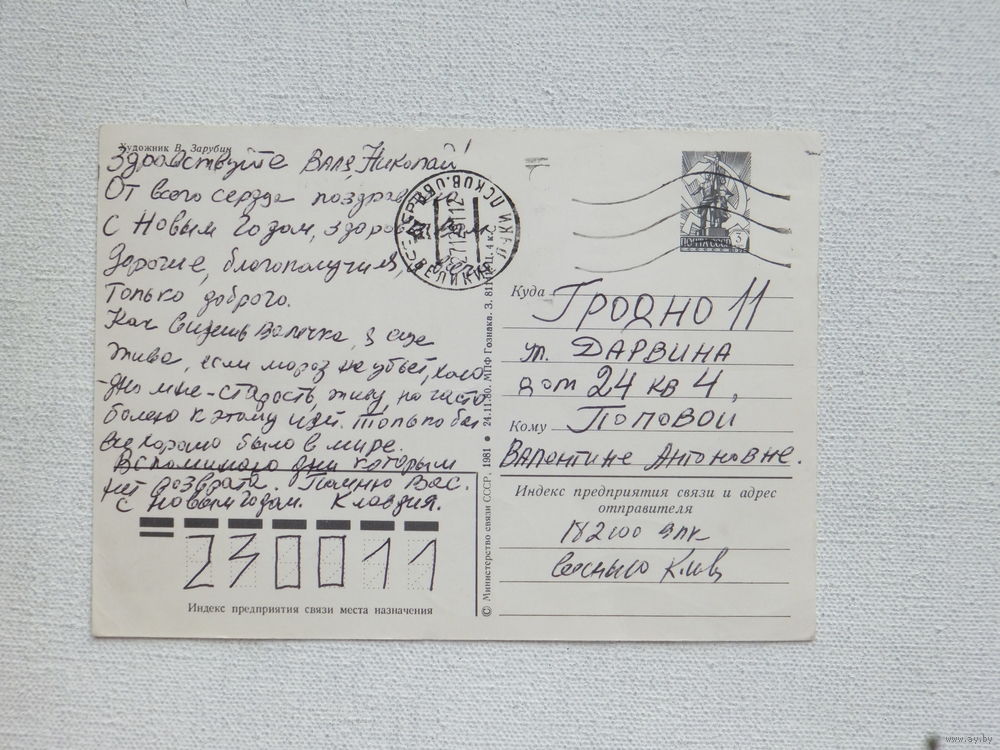 Художник В. Зарубин
Здравствуйте Валя, Николай!
От всего сердца
С Новым Годом,
дорогие, благополучия,
только доброго.
Как видишь Валечка, я еще
жива, если мороз не убьет, холо
дно мне - старость, живу но часто
болею к этому идет. Только бы
все хорошо было в мире.
Вспоминаю дни которым
нет возврата. Помню Вас.
С Новым годом. Клавдия.
230011
Индекс предприятия связи места назначения
© Министерство связи СССР. 1981 • 24.11.80. МПФ Гознака. З. 4 к.
ВЕЛИКИЕ ЛУКИ ПСКОВ. ОБЛ
ПОЧТА СССР
3
Куда Гродно 11
ул. ДАРВИНА
дом 24 кв 4,
Кому ПОПОВОЙ
ВАЛЕНТИНЕ АНТОНОВНЕ.
Индекс предприятия связи и адрес
отправителя
182100
www.ay.by